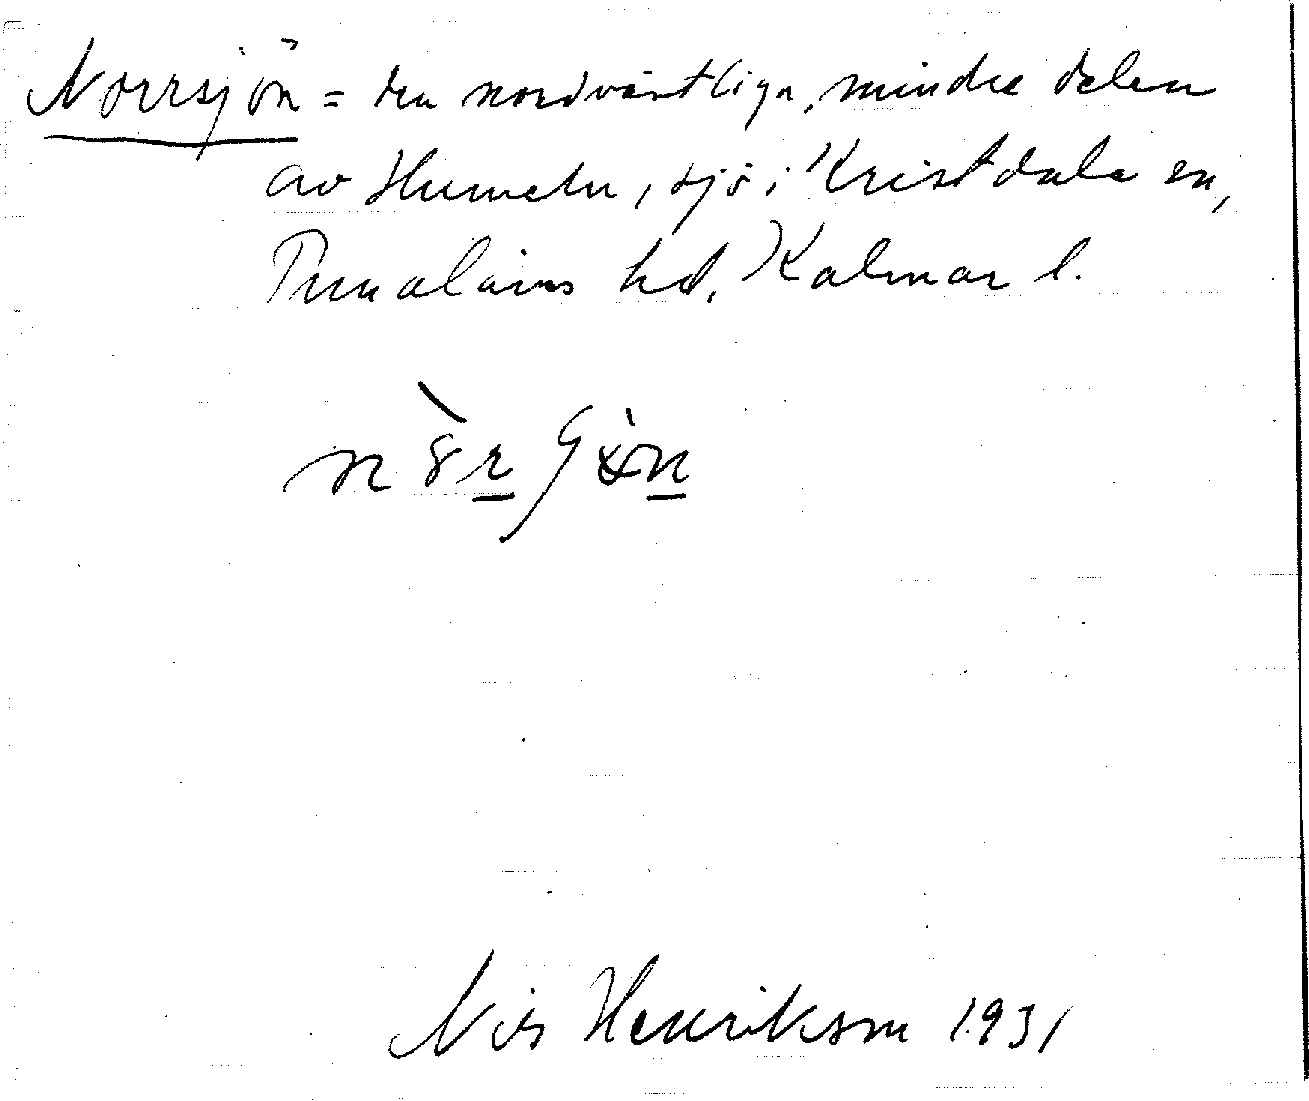 Norrsjön = den nordvästliga, mindre delen
av Humeln, sjö i Kristdala sn,
Tunaläns hd, Kalmar l.
Nils Henriksson 1931